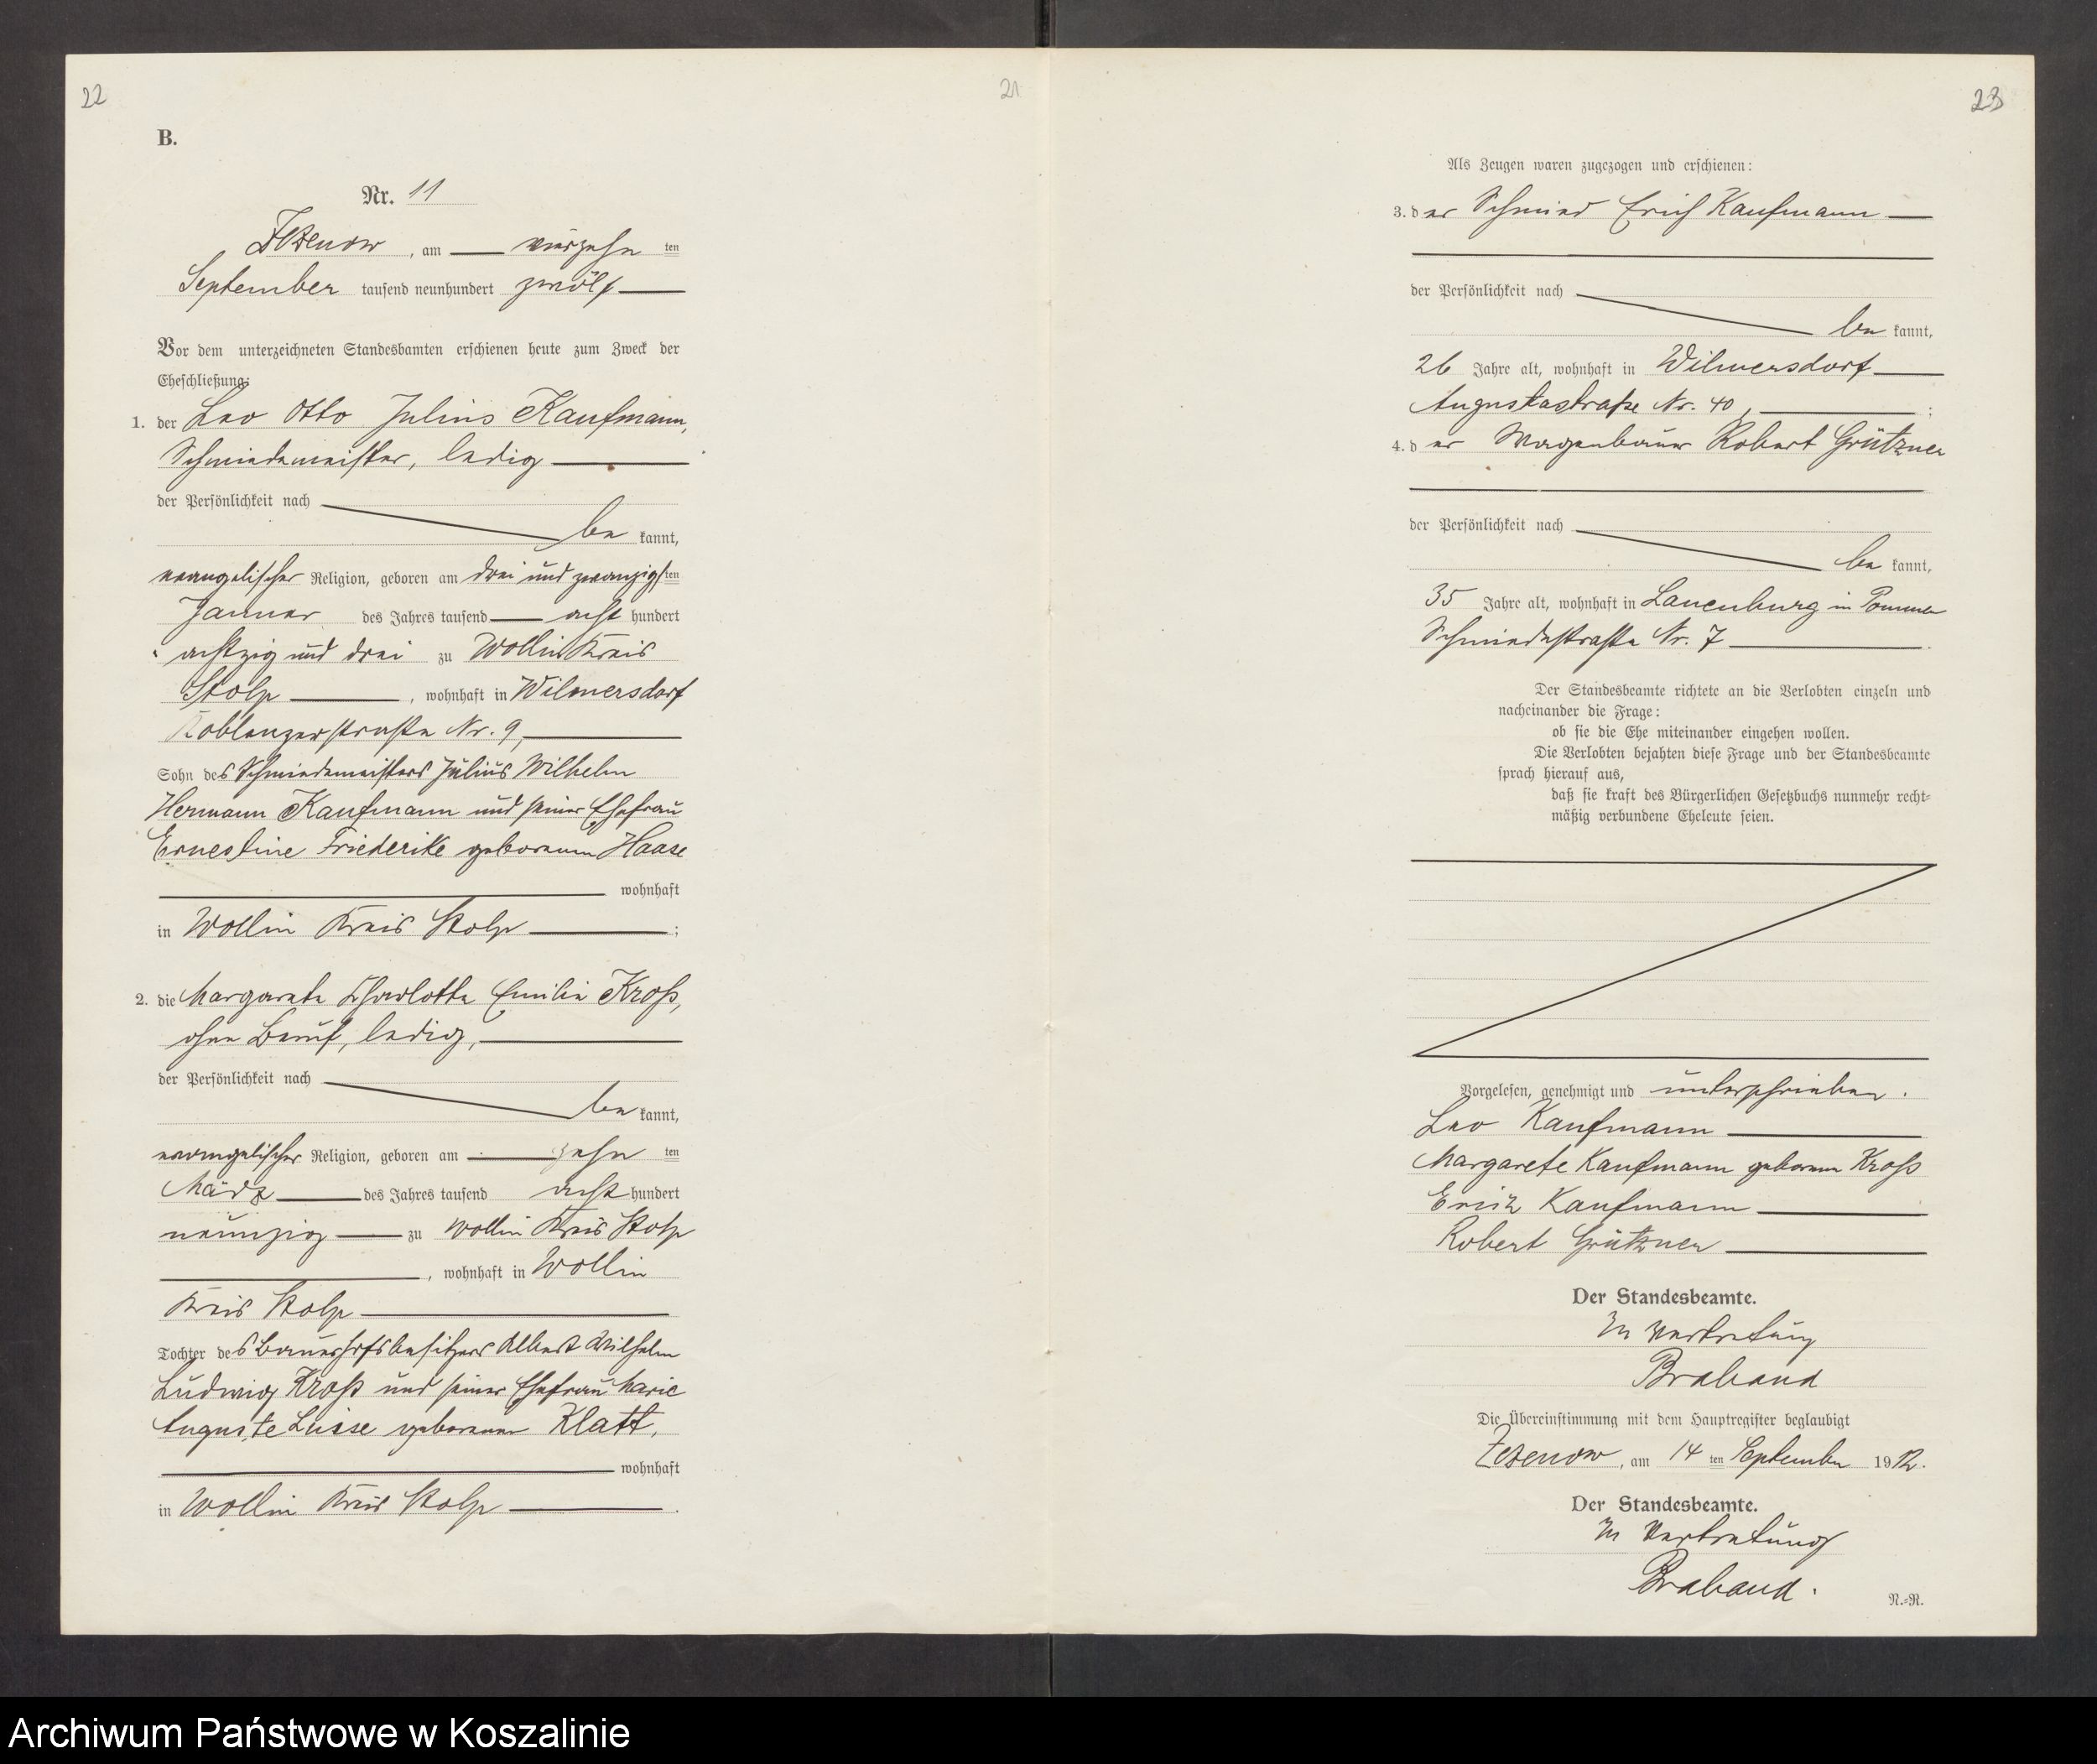 22
21
B.
Nr. 11
Zezenow, am vierzehn ten
September tausend neunhundert zwölf
Vor dem unterzeichneten Standesbamten erschienen heute zum Zweck der
Eheschließung:
1. der Leo Otto Julius Kaufmann,
Schmiedemeister, ledig
der Persönlichkeit nach
be kannt,
evangelischer Religion, geboren am drei und zwanzigsten
Januar des Jahres tausend acht hundert
achtzig und drei zu Wollin Kreis
Stolp, wohnhaft in Wilmersdorf
Koblenzerstraße Nr. 9,
Sohn des Schmiedemeisters Julius Wilhelm
Hermann Kaufmann und seiner Ehefrau
Ernestine Friederike geborenen Haase
wohnhaft
in Wollin Kreis Stolp;
2. die Margarete Charlotte Emilie Kroß,
ohne Beruf, ledig,
der Persönlichkeit nach
be kannt,
evangelischer Religion, geboren am zehn ten
März des Jahres tausend acht hundert
neunzig zu Wollin Kreis Stolp
, wohnhaft in Wollin
Kreis Stolp
Tochter des Bauerhofsbesitzers Albert Wilhelm
Ludwig Kroß und seiner Ehefrau Marie
Auguste Luise geborenen Klatt,
wohnhaft
in Wollin Kreis Stolp.
23
Als Zeugen waren zugezogen und erschienen:
3. der Schmied Erich Kaufmann
der Persönlichkeit nach
be kannt,
26 Jahre alt, wohnhaft in Wilmersdorf
Augustastraße Nr. 40,;
4. der Wagenbauer Robert Grützner
der Persönlichkeit nach
be kannt,
35 Jahre alt, wohnhaft in Lauenburg in Pommern
Schmiedestraße Nr. 7.
Der Standesbeamte richtete an die Verlobten einzeln und
nacheinander die Frage:
ob sie die Ehe miteinander eingehen wollen.
Die Verlobten bejahten diese Frage und der Standesbeamte
sprach hierauf aus,
daß sie kraft des Bürgerlichen Gesetzbuchs nunmehr recht-
mäßig verbundene Eheleute seien.
Vorgelesen, genehmigt und unterschrieben.
Leo Kaufmann
Margarete Kaufmann geborene Kroß
Erich Kaufmann
Robert Grützner
Der Standesbeamte.
In Vertretung
Braband
Die Übereinstimmung mit dem Hauptregister beglaubigt
Zezenow, am 14 ten September 1912.
Der Standesbeamte.
In Vertretung
Braband.
N.-R.
Archiwum Państwowe w Koszalinie